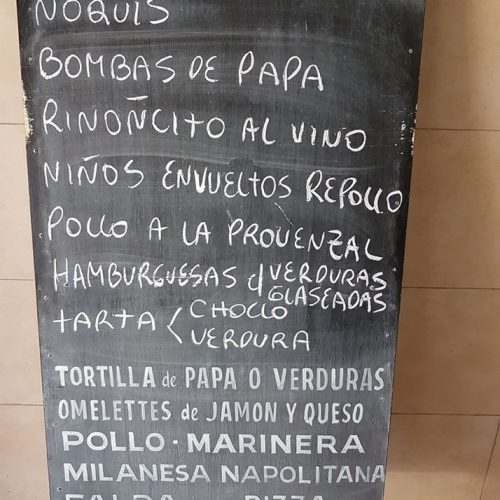 ÑOQUIS
BOMBAS DE PAPA
RIÑOÑCITO AL VINO
NIÑOS ENVUELTOS REPOLLO
POLLO A LA PROVENZAL
HAMBURGUESAS d VERDURAS
GLASEADAS
TARTA < CHOCLO
VERDURA
TORTILLA de PAPA O VERDURAS
OMELETTES de JAMON Y QUESO
POLLO - MARINERA
MILANESA NAPOLITANA
FALDA PIZZA